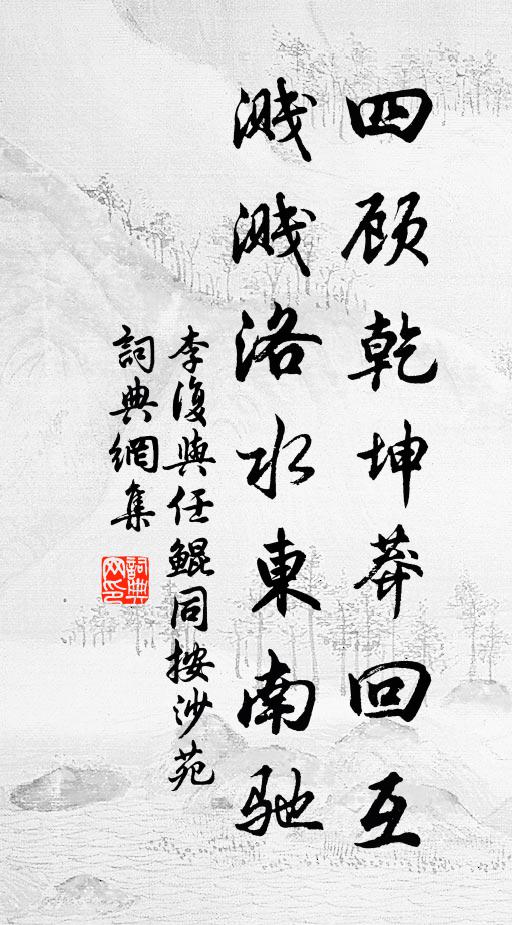 四顾乾坤莽回互
溅溅洛水東南驰
李復與任鲲同按沙苑
詞典網集
詞典网印